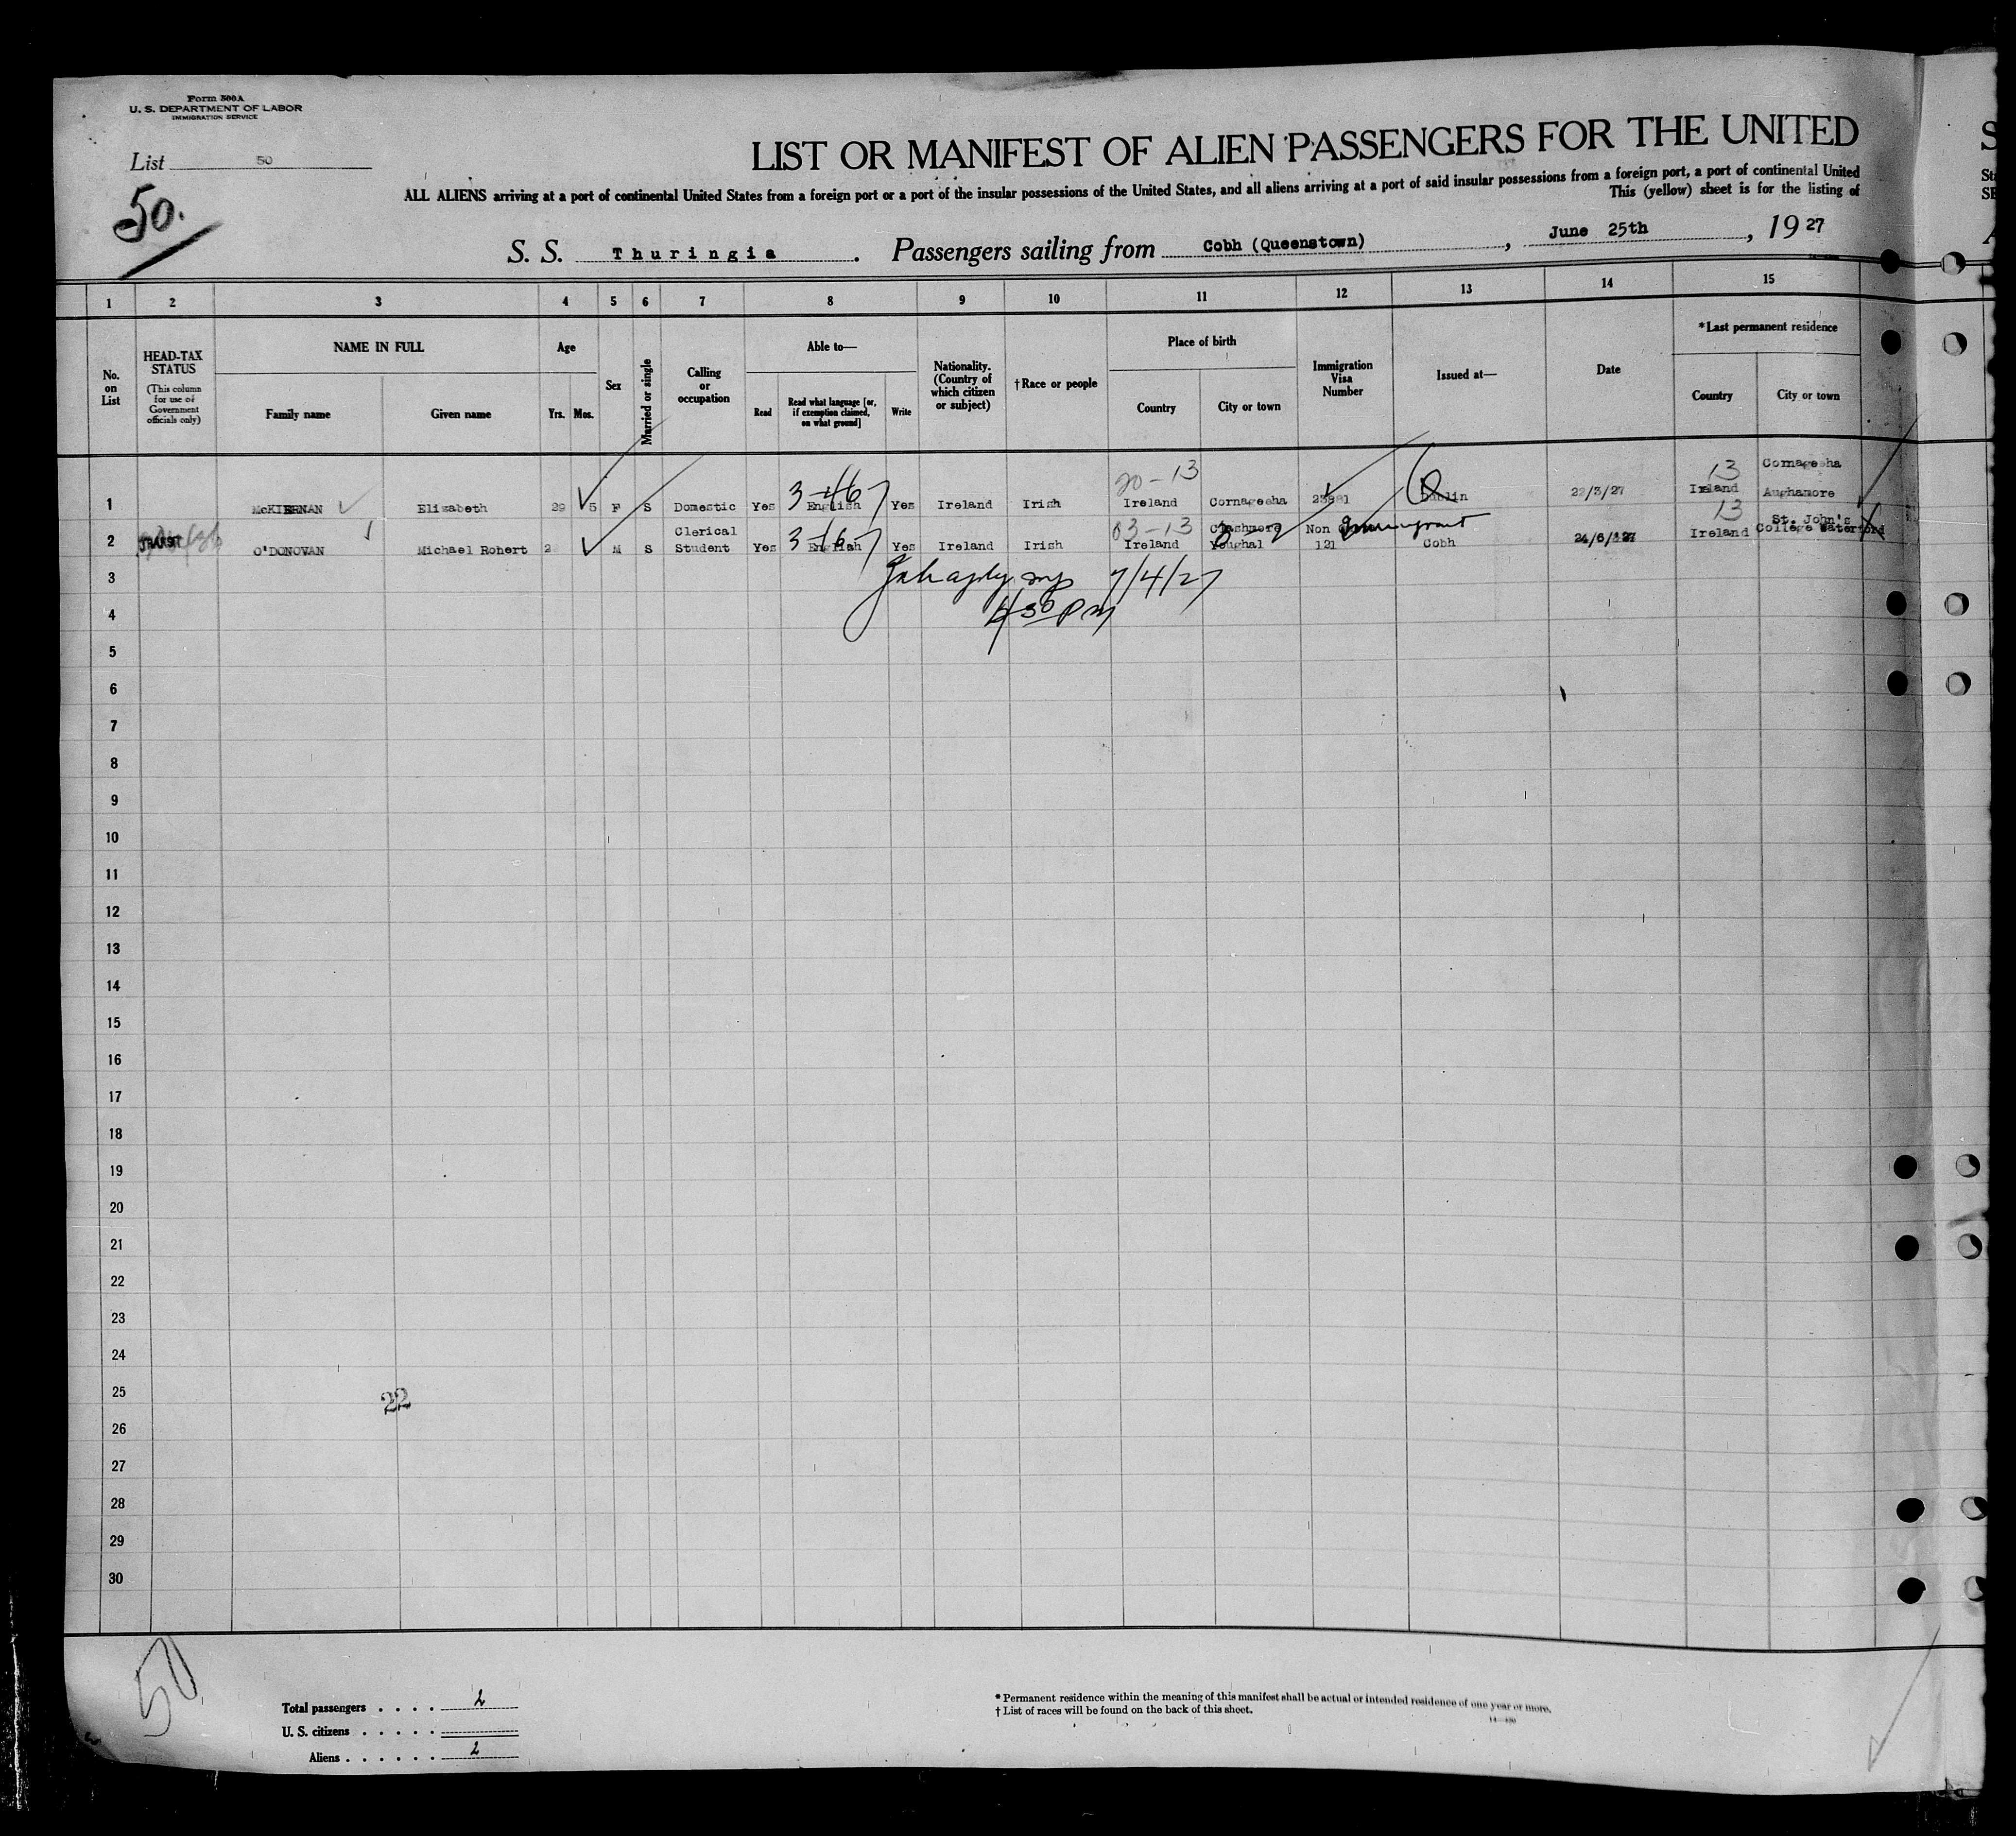 Form 500A
U. S. DEPARTMENT OF LABOR
IMMIGRATION SERVICE
List 50
50.
LIST OR MANIFEST OF ALIEN PASSENGERS FOR THE UNITED
ALL ALIENS arriving at a port of continental United States from a foreign port or a port of the insular possessions of the United States, and all aliens arriving at a port of said insular possessions from a foreign port, a port of continental United
This (yellow) sheet is for the listing of
S. S. Thuringia. Passengers sailing from Cobh (Queenstown), June 25th, 1927
1 2 3 4 5 6 7 8 9 10 11 12 13 14 15
No. on List
HEAD-TAX STATUS
(This column for use of Government officials only)
NAME IN FULL
Family name Given name
Age
Yrs. Mos.
Sex
Married or single
Calling or occupation
Able to—
Read
Read what language [or, if exemption claimed, on what ground]
Write
Nationality. (Country of which citizen or subject)
†Race or people
Place of birth
Country City or town
Immigration Visa Number
Issued at—
Date
*Last permanent residence
Country City or town
20-13 13 Cornageeha
1 McKIERNAN Elizabeth 29 5 F S Domestic Yes English Yes Ireland Irish Ireland Cornageeha Dublin 22/3/27 Ireland Aughamore
TRANSIT Clerical 03-13 Clashmore Non Immigrant 13 St. John's
2 O'DONOVAN Michael Robert M S Student Yes English Yes Ireland Irish Ireland Youghal 121 Cobh Ireland College Waterford
3 7/4/27
4 4 30 PM
5
6
7
8
9
10
11
12
13
14
15
16
17
18
19
20
21
22
23
24
25
22
26
27
28
29
30
50
Total passengers . . . . 2
U. S. citizens . . . . .
Aliens . . . . . . 2
* Permanent residence within the meaning of this manifest shall be actual or intended residence of one year or more.
† List of races will be found on the back of this sheet.